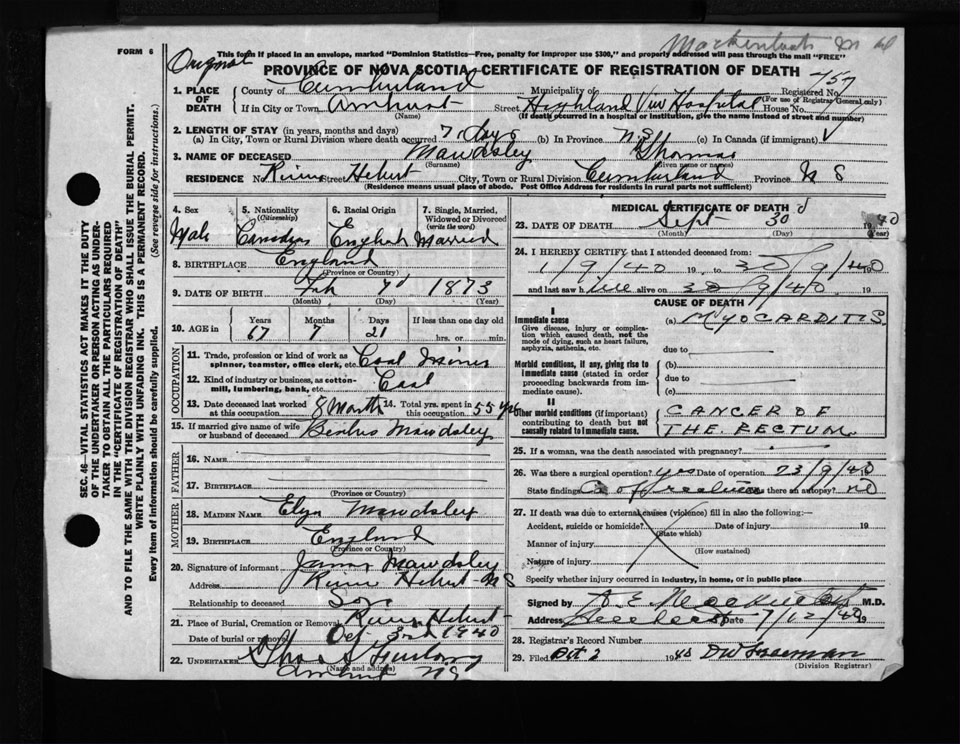 FORM 6
This form if placed in an envelope, marked "Dominion Statistics—Free, penalty for improper use $300," and properly addressed will pass through the mail "FREE"
Original
PROVINCE OF NOVA SCOTIA—CERTIFICATE OF REGISTRATION OF DEATH
1. PLACE OF DEATH
County of Cumberland Municipality of Registered No. 757
(For use of Registrar General only)
If in City or Town Amherst Street Highland View Hospital House No.
(Name) (If death occurred in a hospital or institution, give the name instead of street and number)
2. LENGTH OF STAY (in years, months and days)
(a) In City, Town or Rural Division where death occurred 7 days (b) In Province N.S. (c) In Canada (if immigrant)
3. NAME OF DECEASED Mawdsley Thomas
(Surname) (Given name or names)
RESIDENCE No. River Street Hebert City, Town or Rural Division Cumberland Province N S
(Residence means usual place of abode. Post Office Address for residents in rural parts not sufficient)
4. Sex 5. Nationality (Citizenship) 6. Racial Origin 7. Single, Married, Widowed or Divorced (write the word)
Male Canadian English Married
8. BIRTHPLACE England
(Province or Country)
9. DATE OF BIRTH Feb 7 1873
(Month) (Day) (Year)
10. AGE in Years Months Days If less than one day old
67 7 21 hrs. or min.
OCCUPATION
11. Trade, profession or kind of work as spinner, teamster, office clerk, etc. Coal Miner
12. Kind of industry or business, as cotton-mill, lumbering, bank, etc. Coal
13. Date deceased last worked at this occupation 8 Months 14. Total yrs. spent in this occupation 55 yrs
15. If married give name of wife or husband of deceased Mawdsley
FATHER
16. Name
17. Birthplace
(Province or Country)
MOTHER
18. Maiden Name Mawdsley
19. Birthplace England
(Province or Country)
20. Signature of informant James Mawdsley
Address River Hebert N S
Relationship to deceased Son
21. Place of Burial, Cremation or Removal River Hebert
Date of burial or removal Oct 3rd 1940
22. Undertaker
(Name and address)
Amherst NS
MEDICAL CERTIFICATE OF DEATH
23. DATE OF DEATH Sept 30 1940
(Month) (Day) (Year)
24. I HEREBY CERTIFY that I attended deceased from:
1/9/40 19 to 30/9/40
and last saw h alive on 30/9/40 19
CAUSE OF DEATH
I
Immediate cause (a) MYOCARDITIS
Give disease, injury or complication which caused death, not the mode of dying, such as heart failure, asphyxia, asthenia, etc.
due to
Morbid conditions, if any, giving rise to immediate cause (stated in order proceeding backwards from immediate cause).
(b)
due to
(c)
II
Other morbid conditions (if important) contributing to death but not causally related to immediate cause.
CANCER OF
THE RECTUM
25. If a woman, was the death associated with pregnancy?
26. Was there a surgical operation? yes Date of operation 23/9/40
State findings Was there an autopsy? no
27. If death was due to external causes (violence) fill in also the following:—
Accident, suicide or homicide? Date of injury 19
(State which)
Manner of injury
(How sustained)
Nature of injury
Specify whether injury occurred in industry, in home, or in public place
Signed by M.D.
Address Date 19
28. Registrar's Record Number
29. Filed Oct 2 1940
(Division Registrar)
SEC. 46—VITAL STATISTICS ACT MAKES IT THE DUTY
OF THE UNDERTAKER OR PERSON ACTING AS UNDER-
TAKER TO OBTAIN ALL THE PARTICULARS REQUIRED
IN THE "CERTIFICATE OF REGISTRATION OF DEATH"
AND TO FILE THE SAME WITH THE DIVISION REGISTRAR WHO SHALL ISSUE THE BURIAL PERMIT.
WRITE PLAINLY WITH UNFADING INK. THIS IS A PERMANENT RECORD.
Every item of information should be carefully supplied. (See reverse side for instructions.)